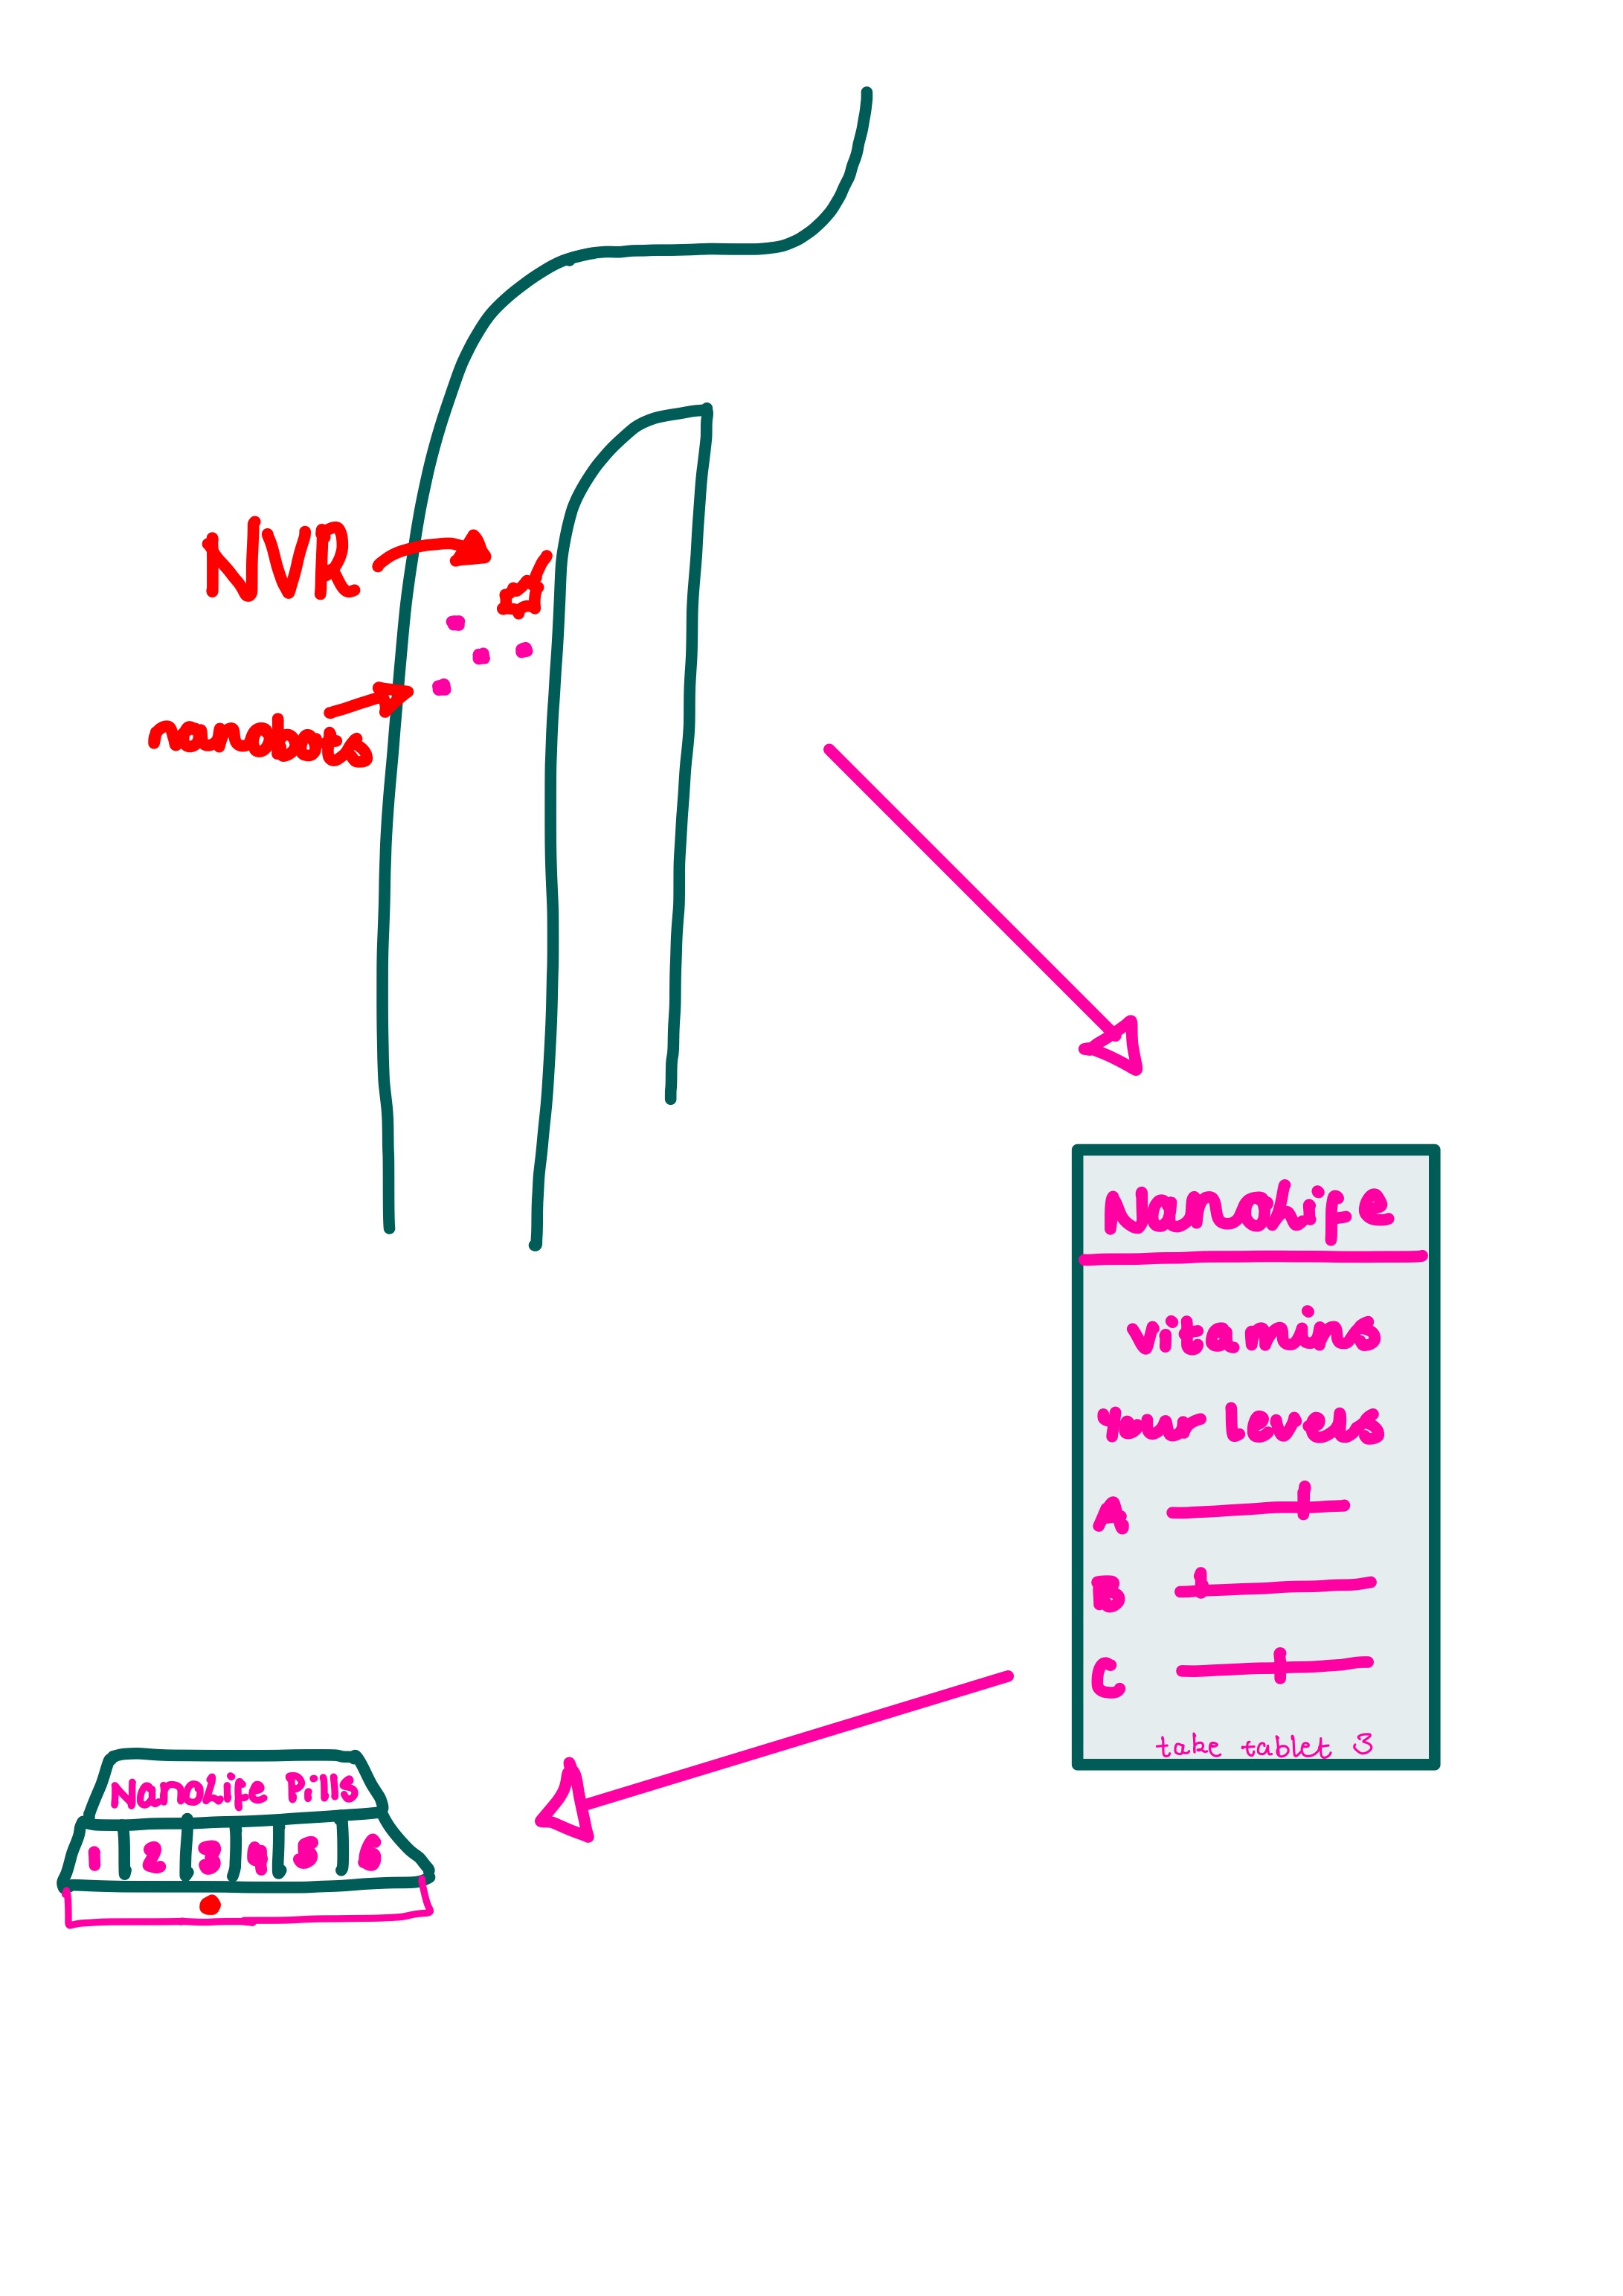 NVR
nanobots
NanoLife
vitamins
Your Levels
A
B
C
take tablet 3
NanoLife Pills
1 2 3 4 5 6